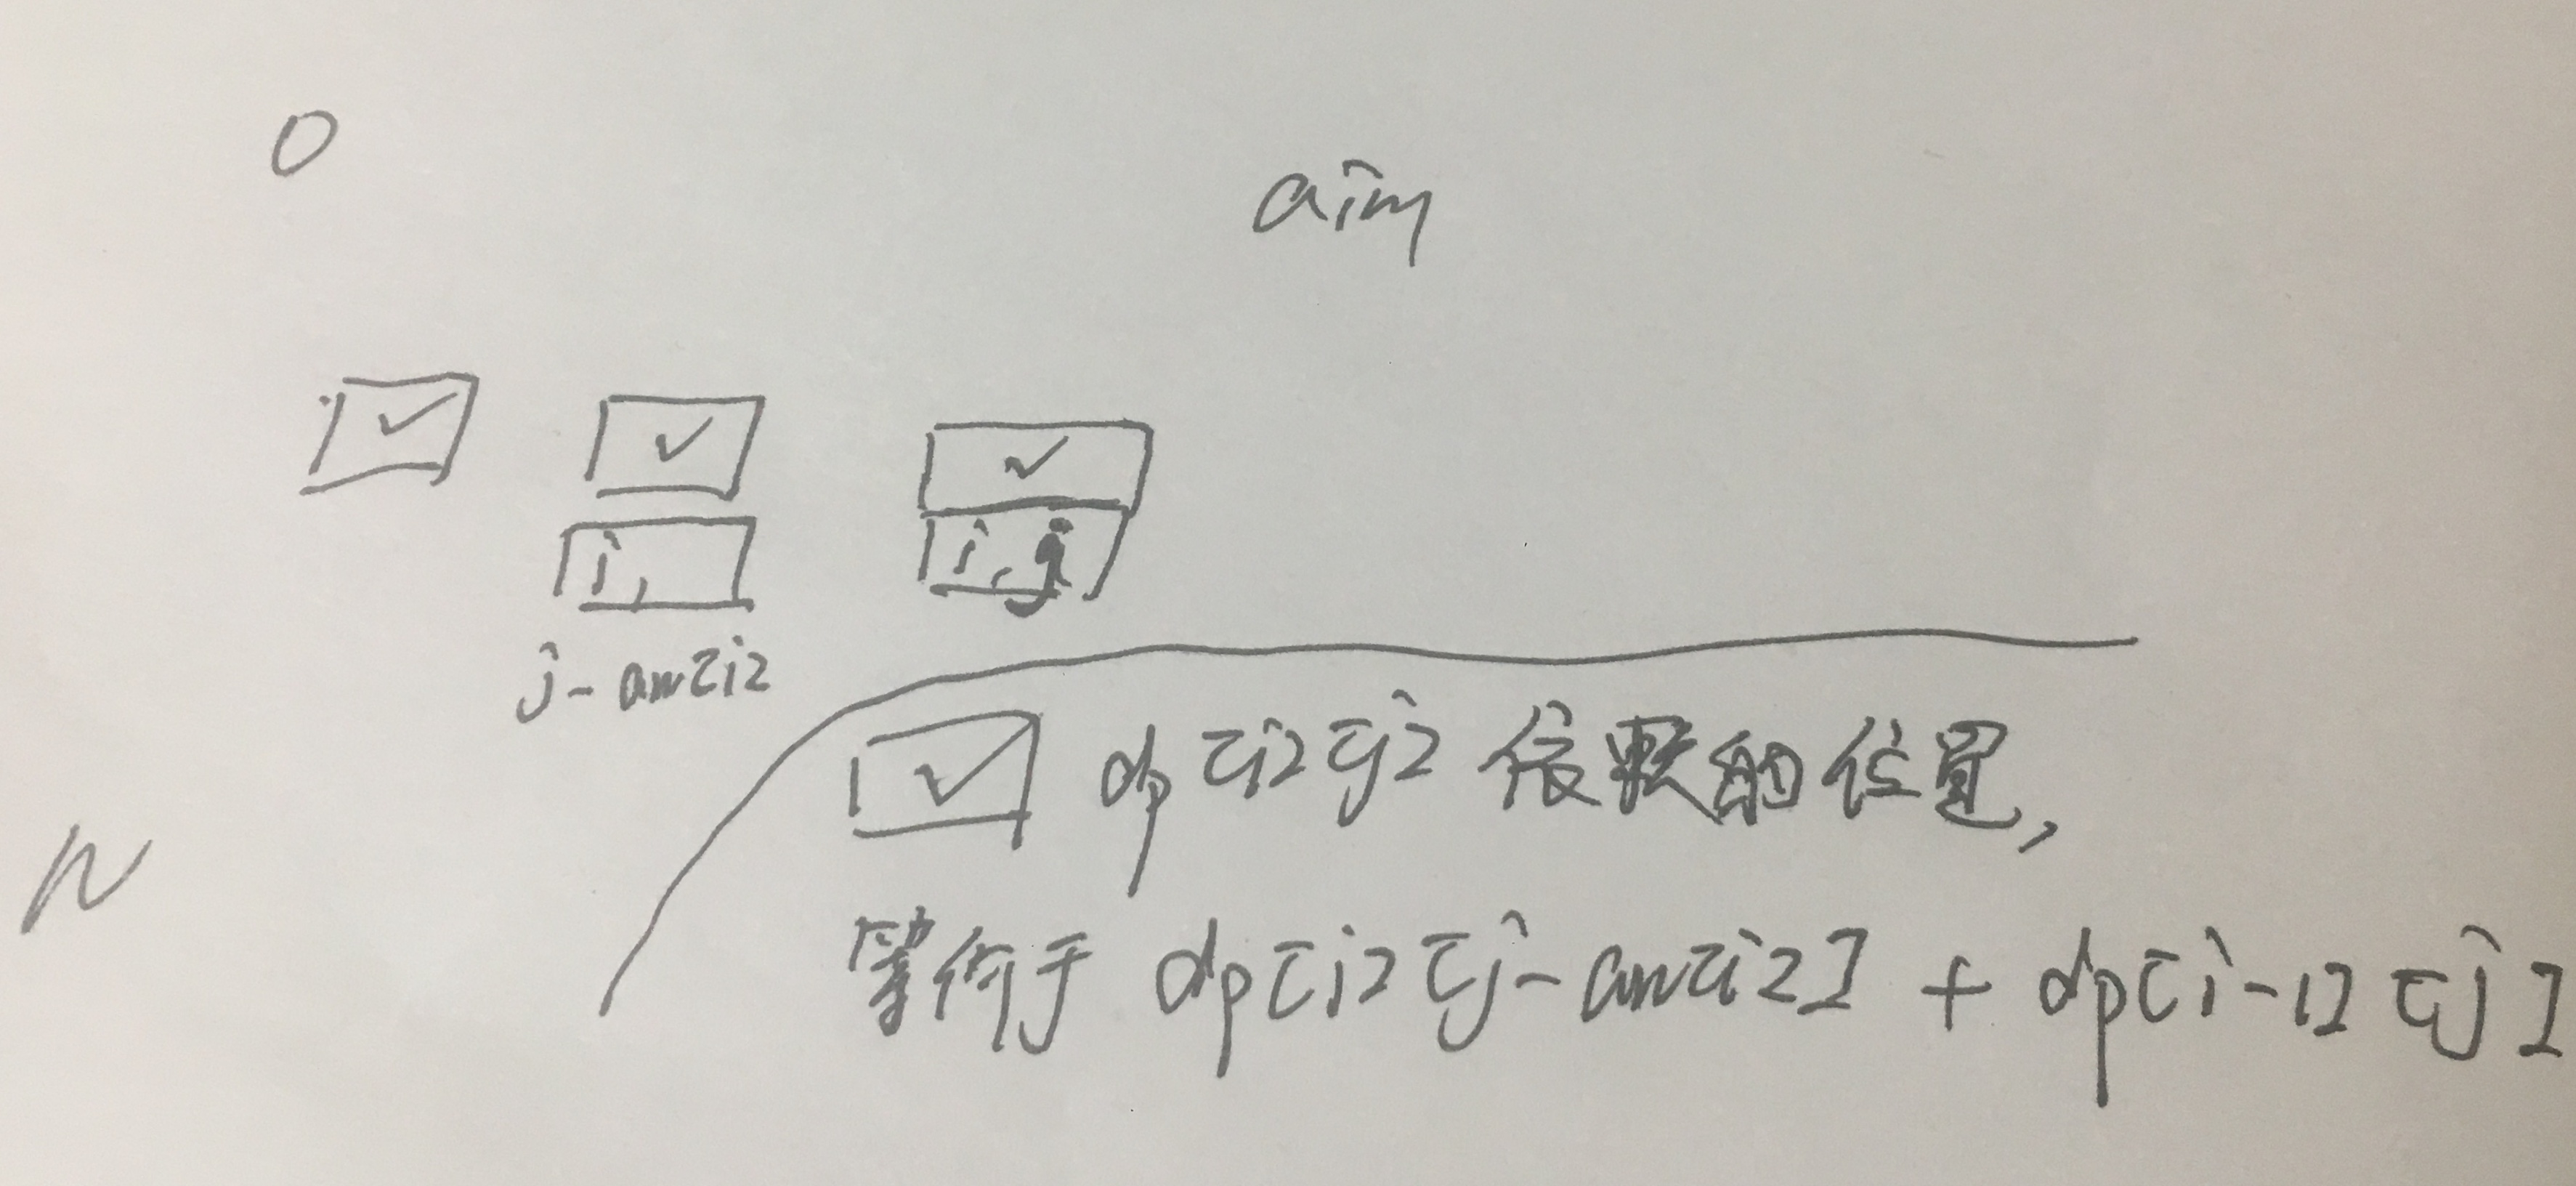 0
aim
✓ ✓ ✓
i, i,j
j-arr[i]
✓ dp[i][j] 依赖的位置,
N
等价于 dp[i][j-arr[i]] + dp[i-1][j]